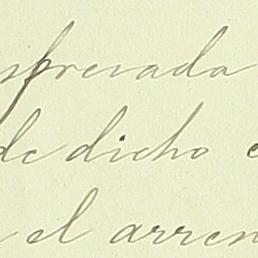 espresada
de dicho
el arren